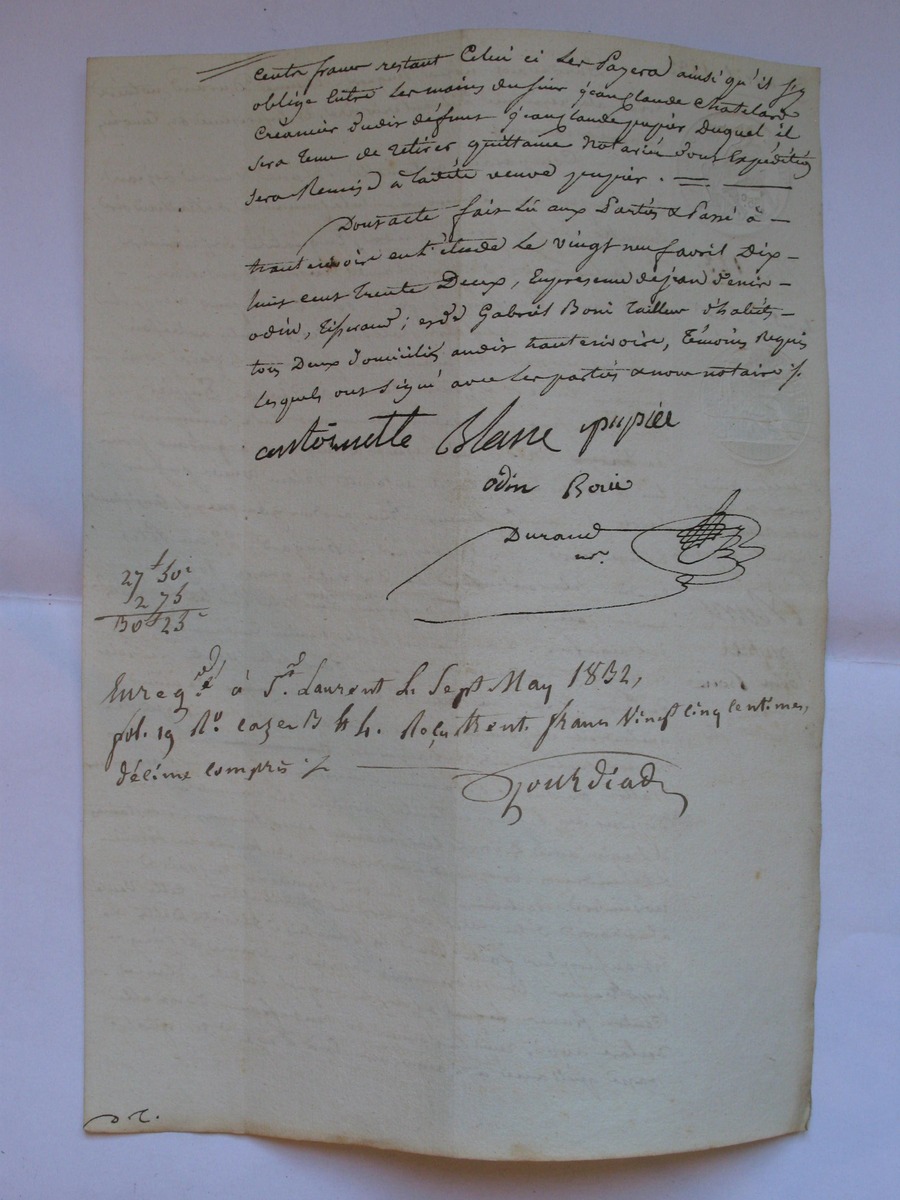 Cents francs restant Celui ci Les Payera ainsi qu'il s'y
oblige Entre Les mains du sieur jean claude Chatelard
Créancier dudit défunt jean claude pupier Duquel il
sera Tenu de retirer quittance Notariée dont Expédition
sera Remise à Ladite veuve pupier.
Dont acte fait Lû aux Parties & Passé à
hauterivoire en l'étude Le vingt neuf avril Dix
huit cent Trente Deux, En présence de jean Denis
odin, Tisserand; et de Gabriel Boni Tailleur d'habits
tous Deux Domiciliés audit hauterivoire, Témoins Requis
Lesquels ont signé avec Les parties & nous notaire ./.
antoinette Blanc pupiée
odin Boni
Durand
nre.
27 f 50 c
2 75
30 f 25 c
Enregtré à St. Laurent Le Sept May 1832,
fol. 19 Ro. cazes 3 & 4. Reçu trente francs Vingt cinq centimes,
décime compris ./.
D. T.